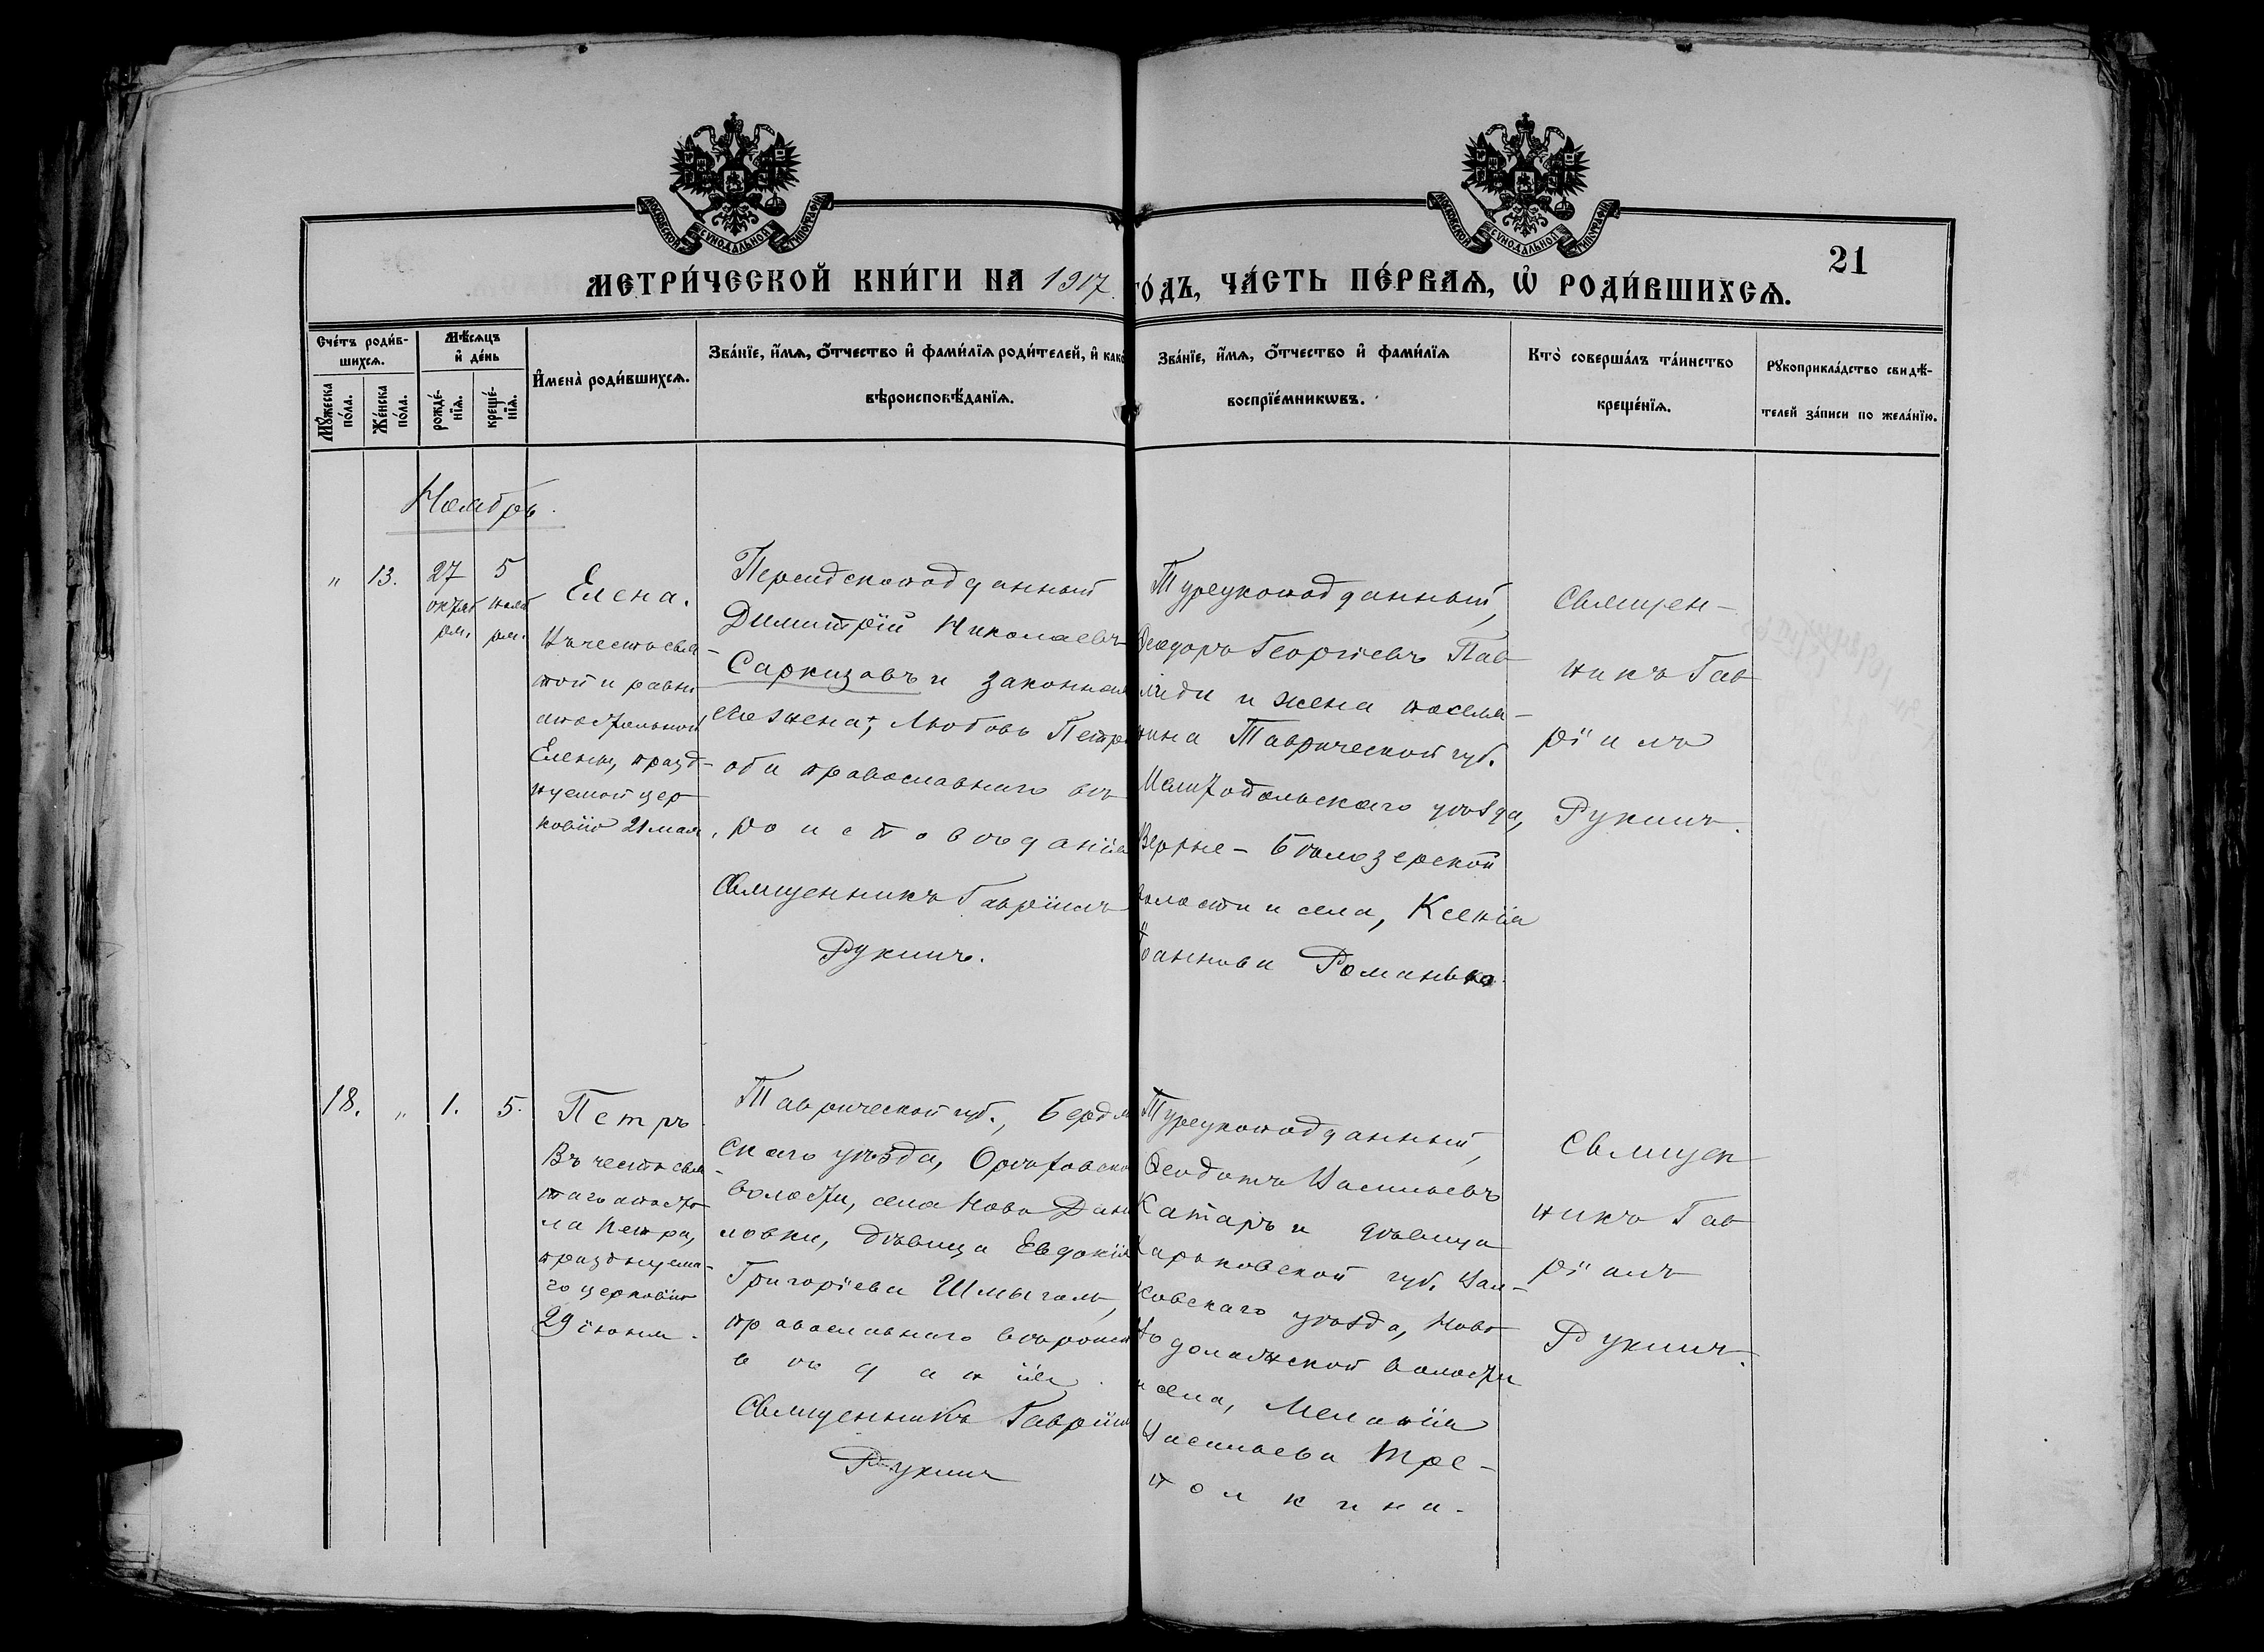 МОСКОВСКОЙ СѴНОДАЛЬНОЙ ТИПОГРАФІИ
МОСКОВСКОЙ СѴНОДАЛЬНОЙ ТИПОГРАФІИ
21
МЕТРИ́ЧЕСКОЙ КНИ́ГИ НА 1917 ГО́ДЪ, ЧА́СТЬ ПЕ́РВАѦ, Ѡ҆ РОДИ́ВШИХСѦ.
Сче́тъ роди́в-
шихсѧ.
Мꙋ́жеска
по́ла.
Же́нска
по́ла.
Мѣ́сѧцъ
и҆ де́нь
рожде́-
нїѧ.
креще́-
нїѧ.
И҆мена̀ роди́вшихсѧ.
Зва́нїе, и҆́мѧ, ѻ҆́тчество и҆ фами́лїѧ роди́телей, и҆ како́
вѣроисповѣ́данїѧ.
Зва́нїе, и҆́мѧ, ѻ҆́тчество и҆ фами́лїѧ
воспрїе́мникѡвъ.
Кто̀ соверша́лъ та́инство
креще́нїѧ.
Рꙋкоприкла́дство свидѣ́-
телей за́писи по жела́нїю.
Ноябрь.
"
13.
27
октяб
ря.
5
нояб
ря.
Елена.
Въ честь свя
той и равно
апостольной
Елены, празд-
нуемой цер
ковію 21 мая.
Персидскоподданный
Димитрій Николаевъ
Саркизовъ и законная
его жена, Любовь Петро
оба православнаго вѣ
роисповѣданія
Священникъ Гавріилъ
Рукинъ.
Турецкоподданный,
Ѳеодоръ Георгіевъ Пав
лиди и жена поселя-
нина Таврической губ.
Мелитопольскаго уѣзда,
Верхне-Бѣлозерской
волости и села, Ксенія
Іоаннова Романько.
Священ-
никъ Гав
ріилъ
Рукинъ.
18.
"
1.
5.
Петръ
Въ честь свя-
таго апосто
ла Петра,
празднуема-
го церковію
29 іюня.
Таврической губ., Бердя
скаго уѣзда, Орѣховско
волости, села Ново Дани
ловки, дѣвица Евдокія
Григоріева Шмыгаль,
православнаго вѣроисп
вѣданія.
Священникъ Гавріилъ
Рукинъ
Турецкоподданный,
Ѳеодотъ Васильевъ
Катаръ и дѣвица
Харьковской губ. Вал-
ковскаго уѣзда, Ново
водолажской волости
и села, Меланія
Васильева Тре-
полкина.
Священ
никъ Гав
ріилъ
Рукинъ.